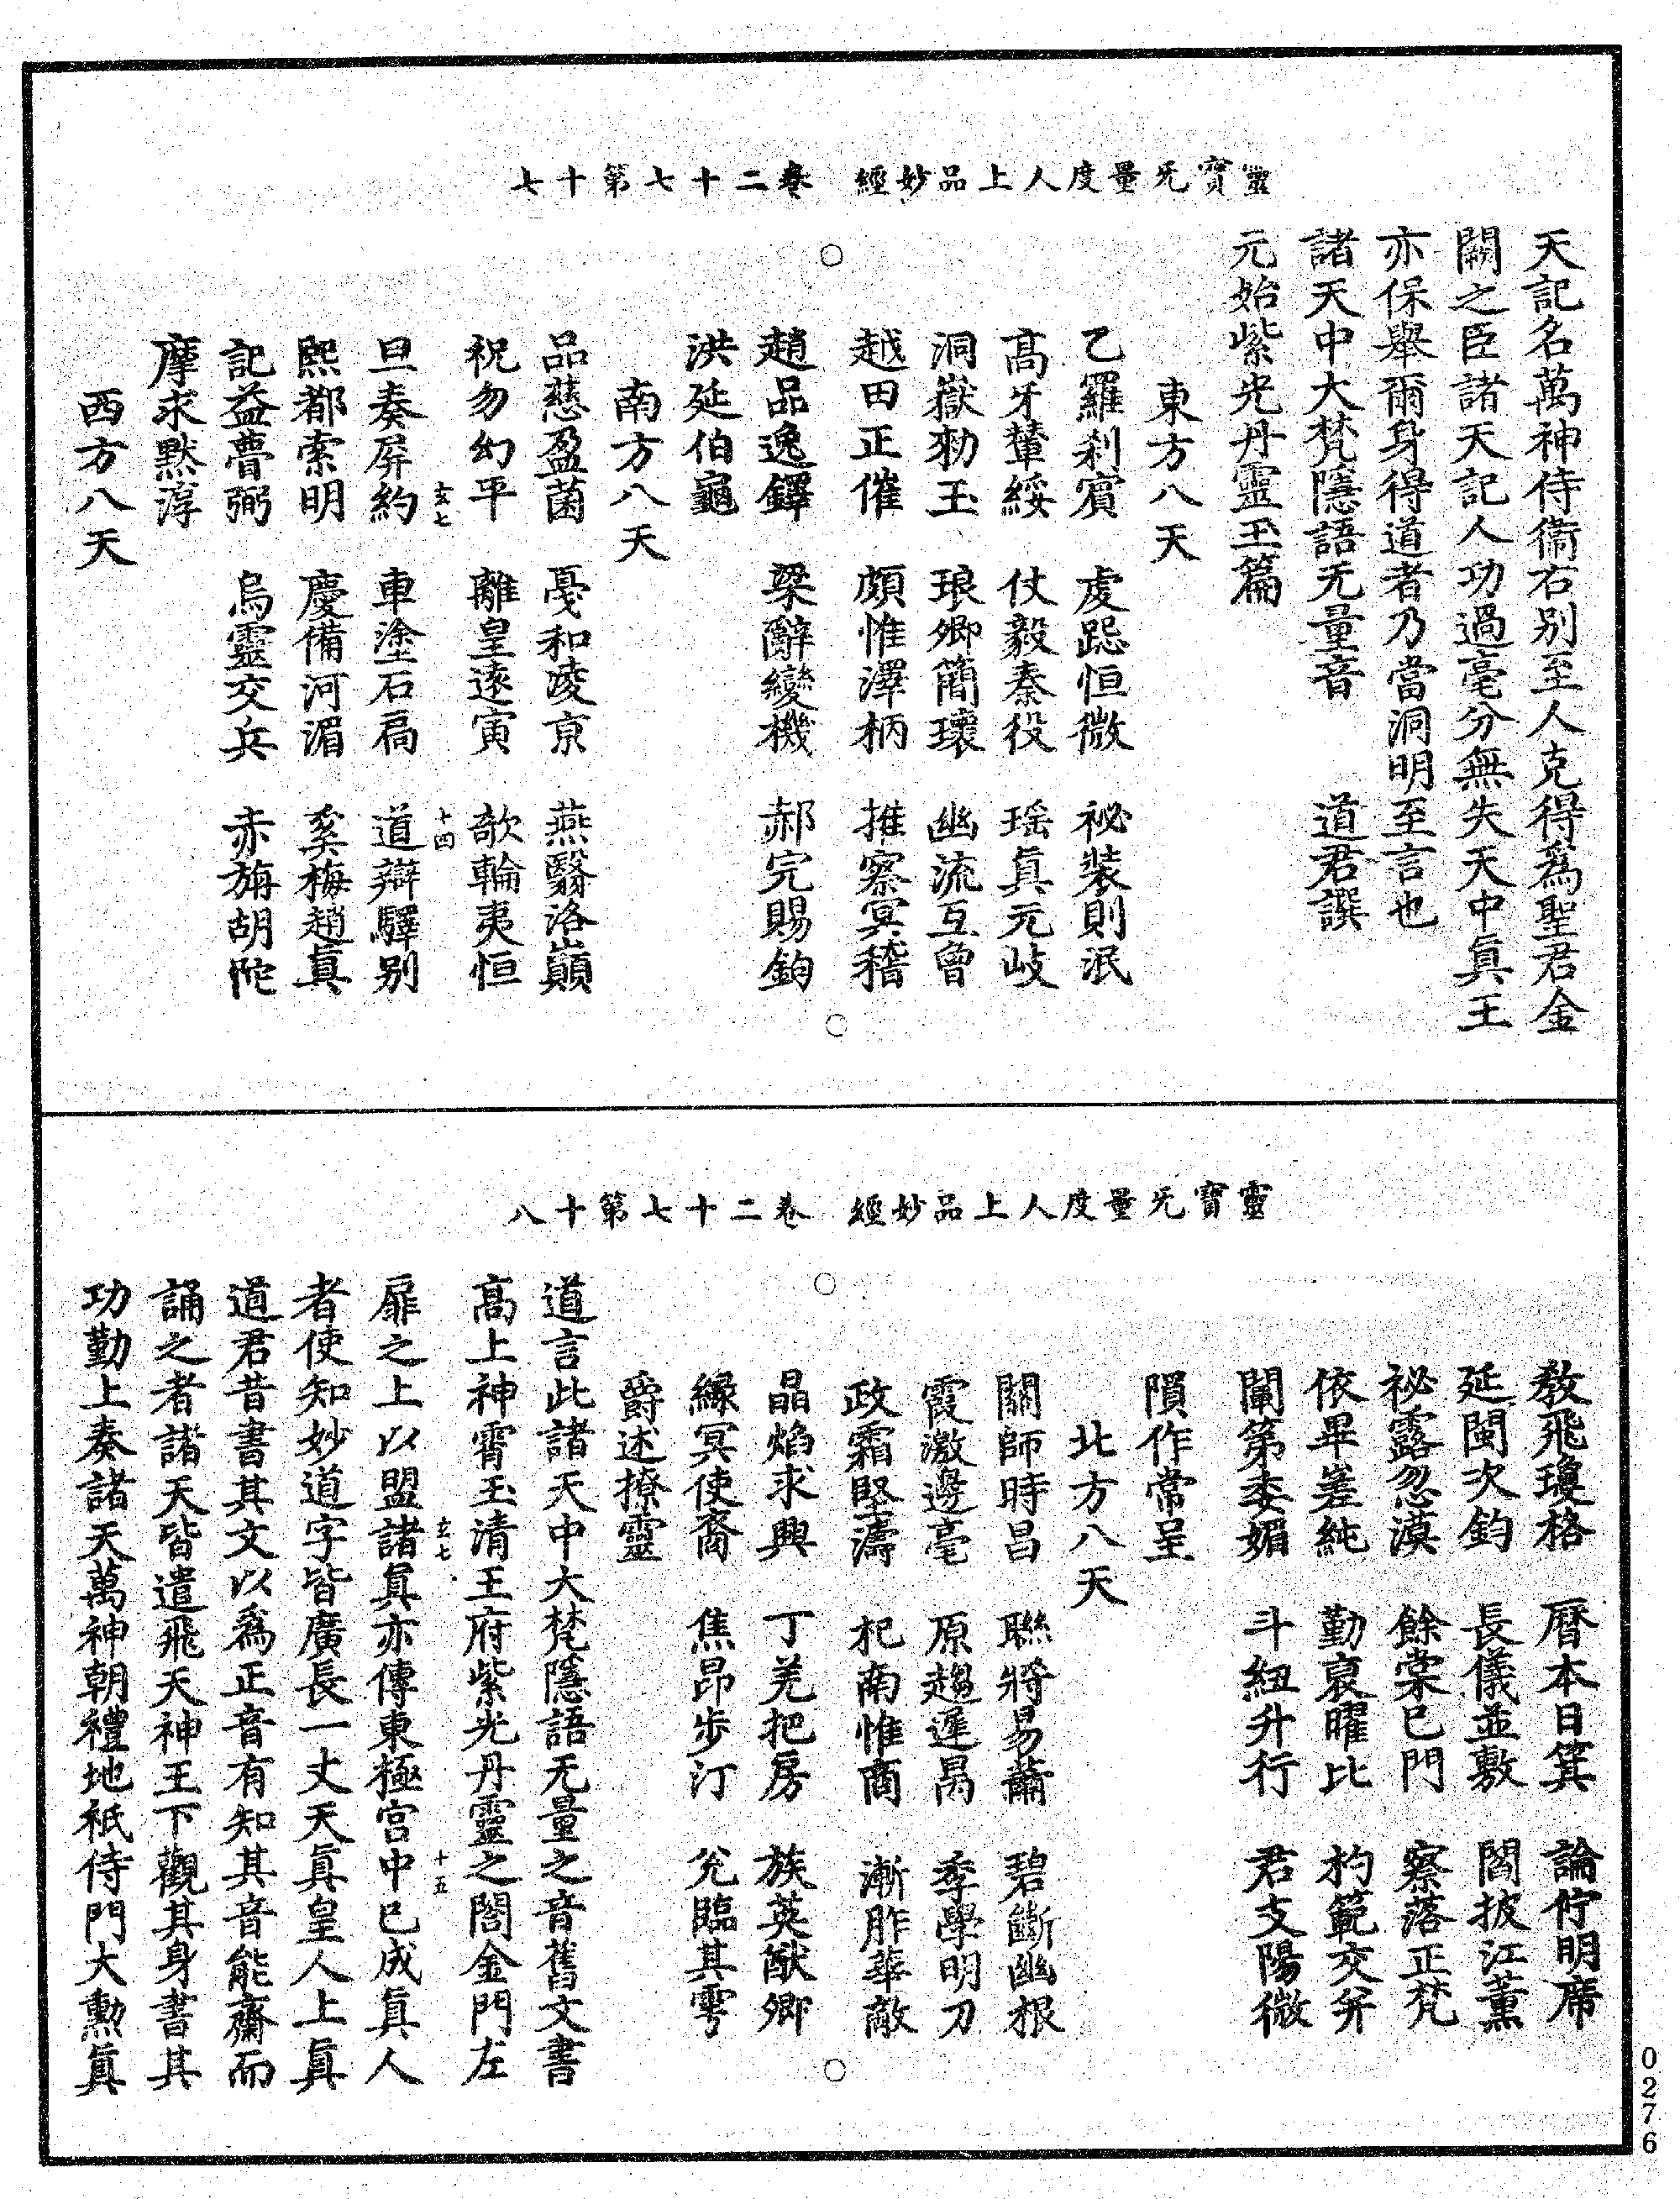 靈寳无量度人上品妙經　卷二十七第十七
天記名萬神侍衞右别至人克得爲聖君金
闕之臣諸天記人功過毫分無失天中眞王
亦保舉爾身得道者乃當洞明至言也
諸天中大梵隱語无量音　　道君譔
元始紫光丹靈玉篇
東方八天
乙羅刹賔　䖍跽恒微　祕裝則泯
髙牙輦綏　仗毅秦役　瑶眞元岐
洞嶽勑玉　琅卿簡瓌　幽流互曾
越田正催　頗惟澤柄　推察冥稽
趙品逸鐸　梁辭變機　郝完賜鈞
洪延伯龜
南方八天
品慈盈菌　戞和凌亰　燕翳洛巔
祝勿幻平　離皇逺寅　欹輪夷恒
玄七　十四
旦奏屏約　車塗石扃　道辯驛别
熙都索明　慶備河湄　奚梅趙眞
記益瞢弼　烏靈交兵　赤旃胡陀
摩求默淳
西方八天
靈寳无量度人上品妙經　卷二十七第十八
敎飛瓊格　曆本日箕　論佇明席
延閩次鈞　長儀並敷　閻披江薰
祕露忽漠　餘棠已門　察落正梵
依畢差純　勤裒曜比　杓範交斧
闡第委媚　斗紐升行　君支陽微
隕作常呈
北方八天
關師時昌　聯將易藺　碧斷幽根
霞激邊毫　原趨遲昺　季學明刀
政霜堅濤　杞南惟啇　漸胙華敵
晶焰求興　丁羌把房　族英猷卿
緣冥使裔　焦昂步汀　兊臨其雩
爵述撩靈
道言此諸天中大梵隱語无量之音舊文書
髙上神霄玉清王府紫光丹靈之閤金門左
玄七　十五
扉之上以盟諸眞亦傳東極宫中已成眞人
者使知妙道字皆廣長一丈天眞皇人上眞
道君昔書其文以爲正音有知其音能齋而
誦之者諸天皆遣飛天神王下觀其身書其
功勤上奏諸天萬神朝禮地祇侍門大勲眞
0276